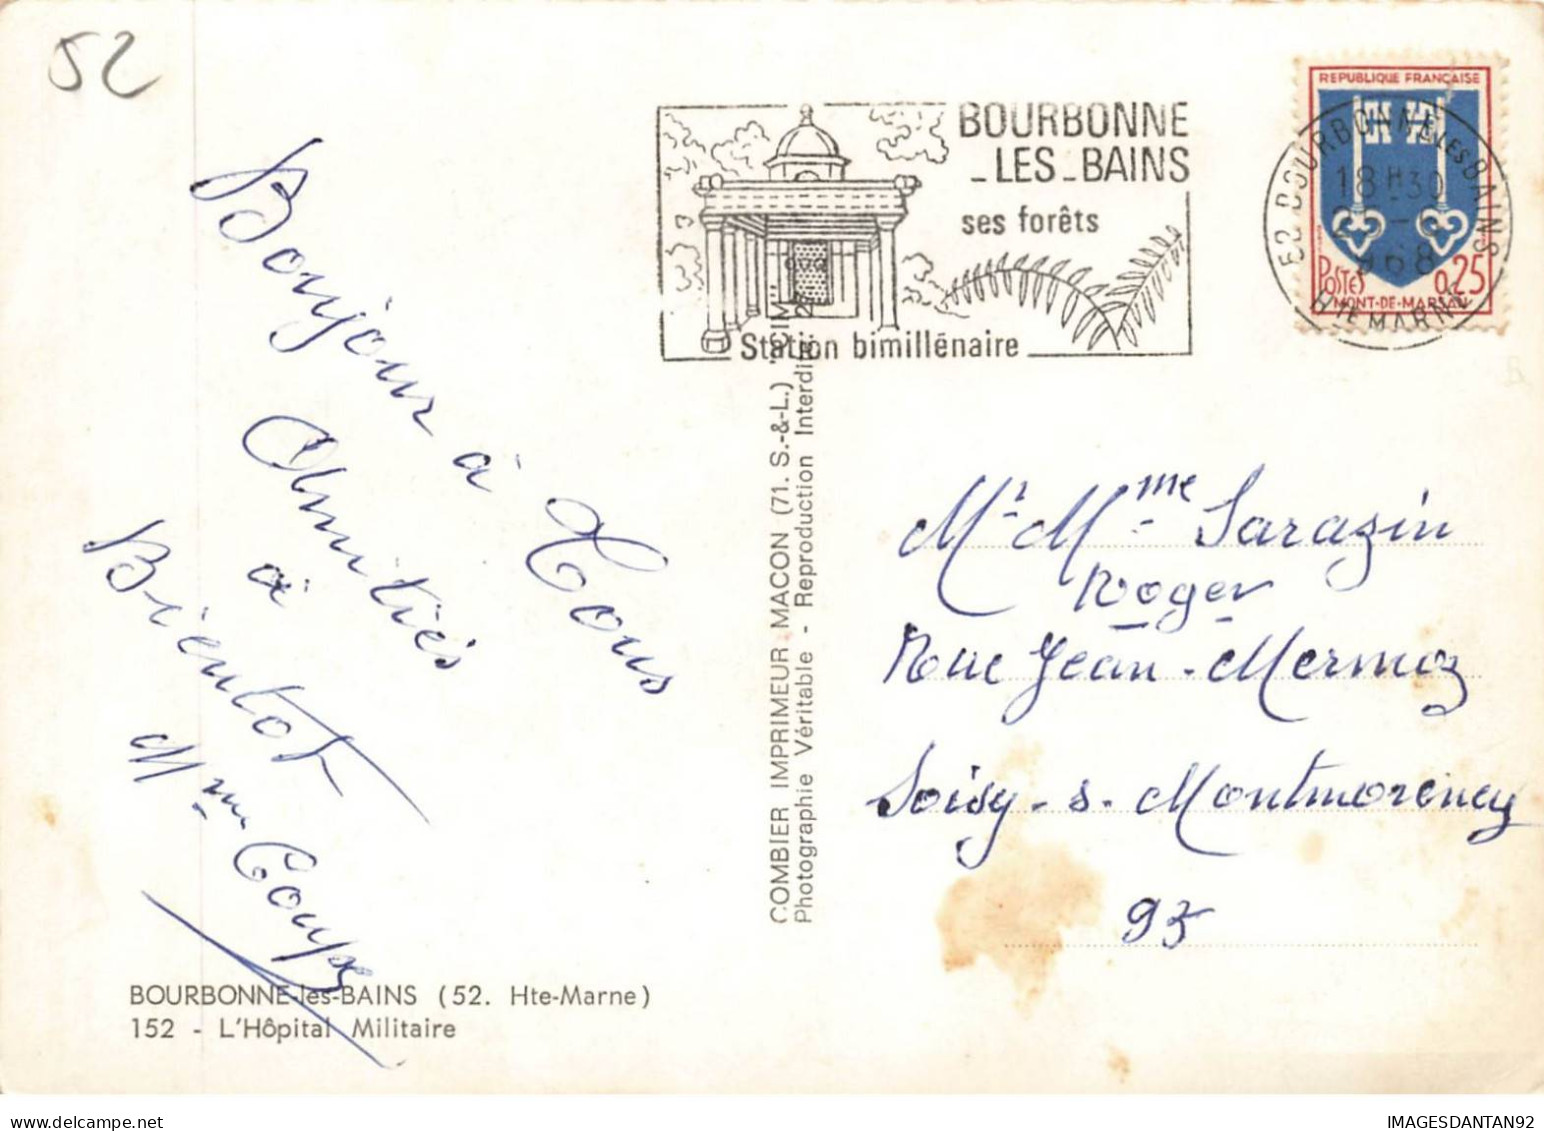 52
Bonjour à Tous
Amitiés
à
Bientot
Mme Coupé
BOURBONNE-les-BAINS (52. Hte-Marne)
152 - L'Hôpital Militaire
COMBIER IMPRIMEUR MACON (71. S.-&-L.) "CIM"
Photographie Véritable - Reproduction Interdite
BOURBONNE
_LES_BAINS
ses forêts
Station bimillénaire
REPUBLIQUE FRANÇAISE
POSTES 0,25
MONT-DE-MARSAN
52 BOURBONNE LES BAINS
18H30
1968
HTE MARNE
Mr Mme Sarazin
Roger
Rue Jean-Mermoz
Soisy-s-Montmorency
95
IMAGESDANTAN92